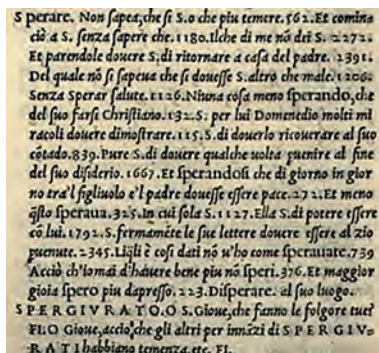 S perare. Non sapea, che si S. o che piu temere. 562. Et comin
ciò a S. senza sapere che. 1180. Ilche di me nõ dei S. 2272.
Et parendole douere S. di ritornare a casa del padre. 2391.
Del quale nõ si sapeua che si douesse S. altro che male. 1206.
Senza Sperar salute. 1126. Niuna cosa meno sperando, che
del suo farsi Christiano. 132. S. per lui Domenedio molti mi
racoli douere dimostrare. 115. S. di douerlo ricouerare al suo
cõtado. 839. Pure S. di douere qualche uolta puenire al fine
del suo disiderio. 1667. Et sperandosi che di giorno in gior
no tra'l figliuolo e'l padre douesse essere pace. 272. Et meno
q̃sto speraua. 325. In cui sola S. 1127. Ella S. di potere essere
cò lui. 1792. S. fermamẽte le sue lettere douere essere al zio
puenute. 2345. Liq̃li è cosi dati nô u'ho come sperauate. 739
Acciò ch'iomai d'hauere bene piu nò speri. 376. Et maggior
gioia spero piu dapresso. 223. Disperare. al suo luogo.
S P E R G I V R A T O. O S. Gioue, che fanno le folgore tue?
FI. O Gioue, acciò, che gli altri per innãzi di S P E R G I V=
R A T I habbiano temenza. etc. FI.